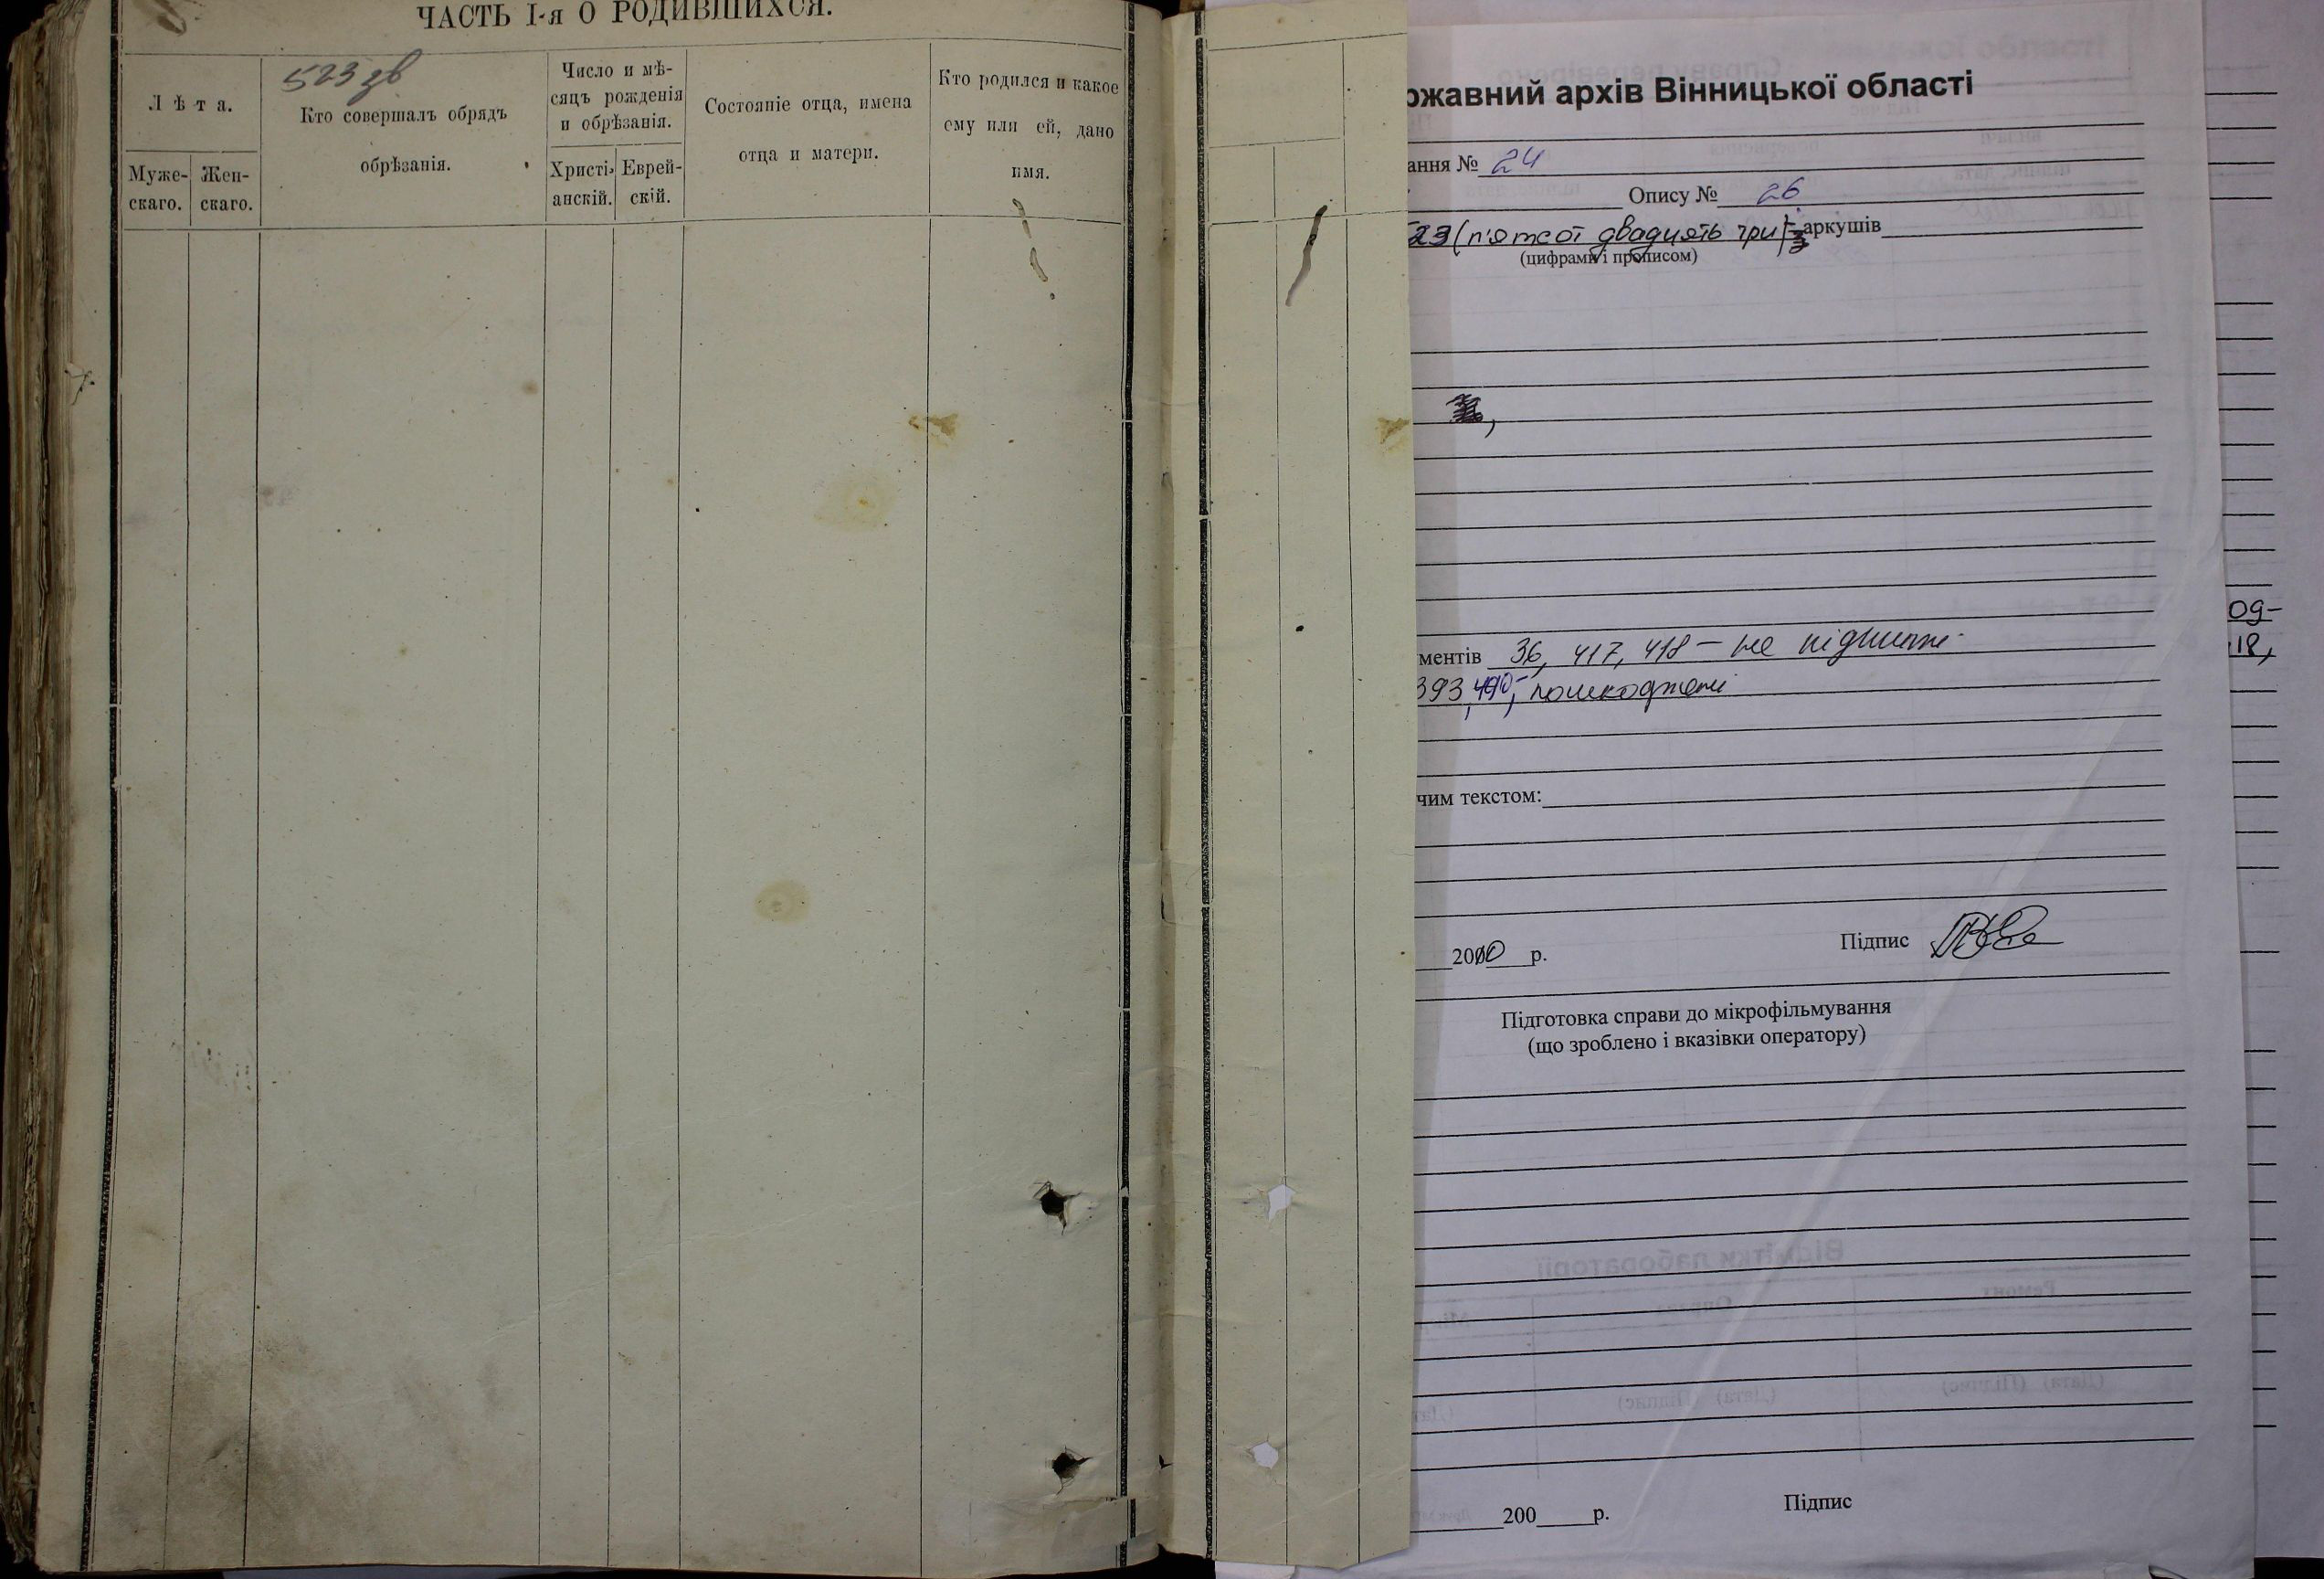 ЧАСТЬ I-я О РОДИВШИХСЯ.
523 зв
Лѣта.
Муже-
скаго.
Жен-
скаго.
Кто совершалъ обрядъ
обрѣзанія.
Число и мѣ-
сяцъ рожденія
и обрѣзанія.
Христі-
анскій.
Еврей-
скій.
Состояніе отца, имена
отца и матери.
Кто родился и какое
ему или ей, дано
имя.
ржавний архів Вінницької області
ання № 24
Опису № 26
23 (п'ятсот двадцять три) аркушів
(цифрами і прописом)
ментів 36, 417, 418 – не підшиті
393, 490, пошкоджені
чим текстом:
2000 р. Підпис
Підготовка справи до мікрофільмування
(що зроблено і вказівки оператору)
200 р. Підпис
од-
18,